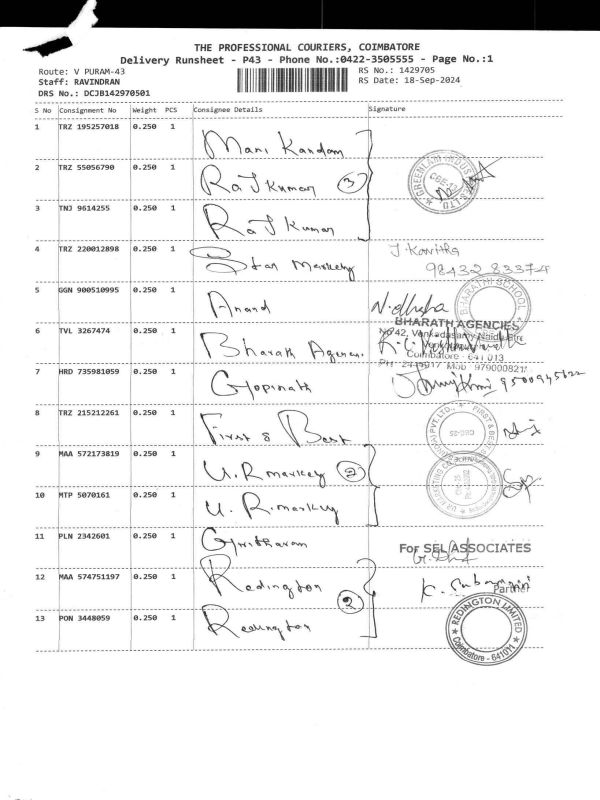 THE PROFESSIONAL COURIERS, COIMBATORE
Delivery Runsheet - P43 - Phone No.:0422-3505555 - Page No.:1
Route: V PURAM-43 RS No.: 1429705
Staff: RAVINDRAN RS Date: 18-Sep-2024
DRS No.: DCJB142970501
S No Consignment No Weight PCS Consignee Details Signature
1 TRZ 195257018 0.250 1 Mani Kandam
2 TRZ 55056790 0.250 1 Raj Kumar 3
GREENLAM INDUSTRIES LTD.
3 TNJ 9614255 0.250 1 Raj Kumar
4 TRZ 220012898 0.250 1 Star Markeig J. Kavitha
98432 83374
5 GGN 900510995 1 Anand
BHARATHI SCHOOL
BHARATH AGENCIES
6 TVL 3267474 0.250 1 Bharath Agencies No 42, Venkadasamy Naidu
Coimbatore - 641 013
7 HRD 735981059 0.250 1 Gopinath
8 TRZ 215212261 0.250 1 First & Best
FIRST & BEST
9 MAA 572173819 0.250 1 U.R markey 2
10 MTP 5070161 0.250 1 U.R. markey
11 PLN 2342601 0.250 1 Giritharan For SEL ASSOCIATES
12 MAA 574751197 0.250 1 Redington 2 Partner
13 PON 3448059 0.250 1 Redington
REDINGTON LIMITED
Coimbatore - 641011